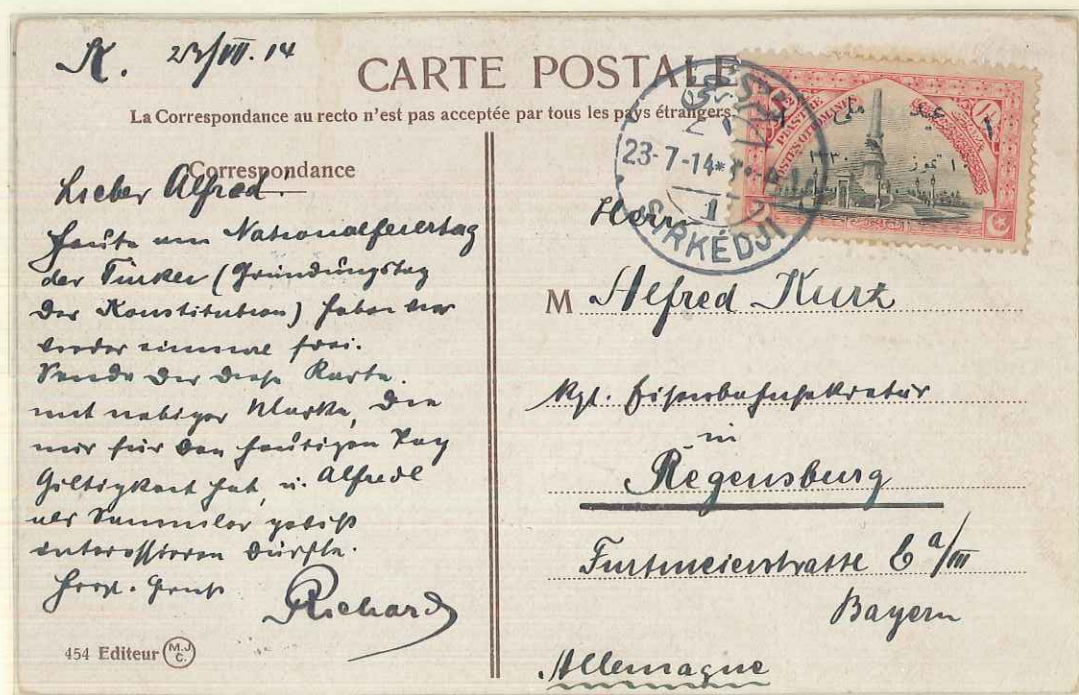 K. 23/VII. 14
CARTE POSTALE
La Correspondance au recto n'est pas acceptée par tous les pays étrangers.
Correspondance
Lieber Alfred!
Heute am Nationalfeiertag
der Türken (Gründungstag
der Konstitution) haben wir
wieder einmal frei.
Sende dir diese Karte
mit nebiger Marke, die
nur für den heutigen Tag
Giltigkeit hat, u. Alfredl
als Sammler gewiß
interessieren dürfte.
Herzl. Gruß
Richard
454 Editeur M.J.C.
23-7-14
SIRKÉDJI
PIASTRE
10 تموز ١٣٣٠
Herrn
M Alfred Kurz
Kgl. Eisenbahnsekretär
in
Regensburg
Furtmeierstrasse 6 a/III
Bayern
Allemagne